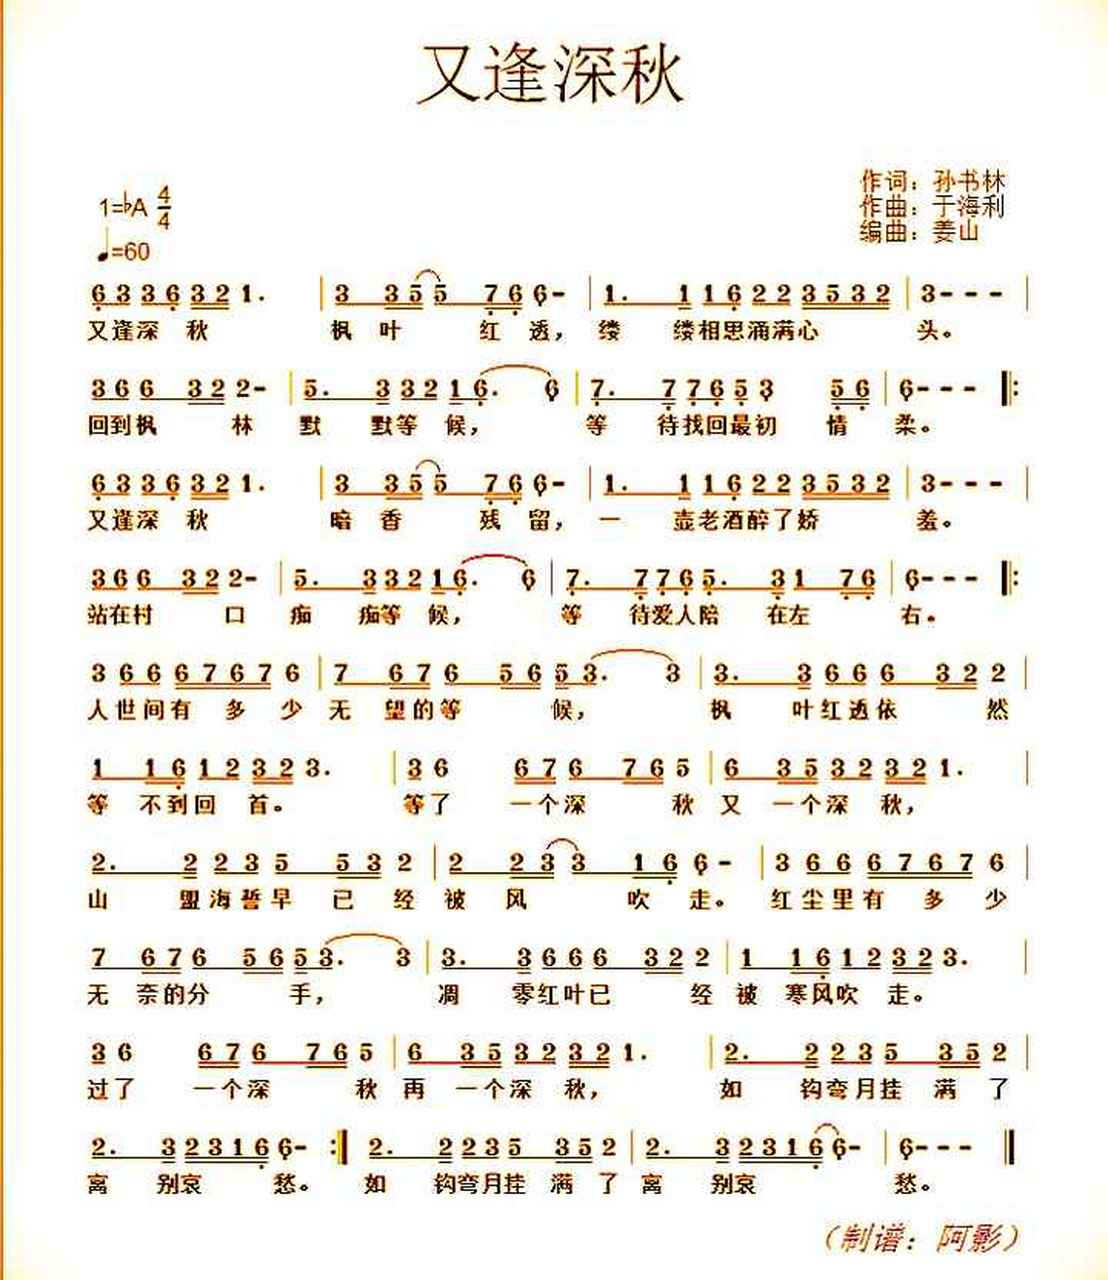 又逢深秋
作词：孙书林
1=bA 4/4
作曲：于海利
编曲：姜山
♩=60
6 3 3 6 3 2 1. | 3 3 5 5 7 6 6- | 1. 1 1 6 2 2 3 5 3 2 | 3- - - |
又逢深 秋 枫 叶 红 透， 缕 缕相思涌满心 头。
3 6 6 3 2 2- | 5. 3 3 2 1 6. 6 | 7. 7 7 6 5 3 5 6 | 6- - - ‖:
回到枫 林 默 默等 候， 等 待找回最初 情 柔。
6 3 3 6 3 2 1. | 3 3 5 5 7 6 6- | 1. 1 1 6 2 2 3 5 3 2 | 3- - - |
又逢深 秋 暗 香 残 留， 一 壶老酒醉了娇 羞。
3 6 6 3 2 2- | 5. 3 3 2 1 6. 6 | 7. 7 7 6 5. 3 1 7 6 | 6- - - ‖:
站在村 口 痴 痴等 候， 等 待爱人陪 在左 右。
3 6 6 6 7 6 7 6 | 7 6 7 6 5 6 5 3. 3 | 3. 3 6 6 6 3 2 2 |
人世间有 多 少 无 望的等 候， 枫 叶红透依 然
1 1 6 1 2 3 2 3. | 3 6 6 7 6 7 6 5 | 6 3 5 3 2 3 2 1. |
等 不到回 首。 等了 一个深 秋 又 一个深 秋，
2. 2 2 3 5 5 3 2 | 2 2 3 3 1 6 6- | 3 6 6 6 7 6 7 6 |
山 盟海誓早 已 经 被 风 吹 走。 红尘里有 多 少
7 6 7 6 5 6 5 3. 3 | 3. 3 6 6 6 3 2 2 | 1 1 6 1 2 3 2 3. |
无 奈的分 手， 凋 零红叶已 经 被 寒风吹 走。
3 6 6 7 6 7 6 5 | 6 3 5 3 2 3 2 1. | 2. 2 2 3 5 3 5 2 |
过了 一个深 秋 再 一个深 秋， 如 钩弯月挂 满 了
2. 3 2 3 1 6 6- :‖ 2. 2 2 3 5 3 5 2 | 2. 3 2 3 1 6 6- | 6- - - ‖
离 别哀 愁。 如 钩弯月挂 满 了 离 别哀 愁。
（制谱：阿影）